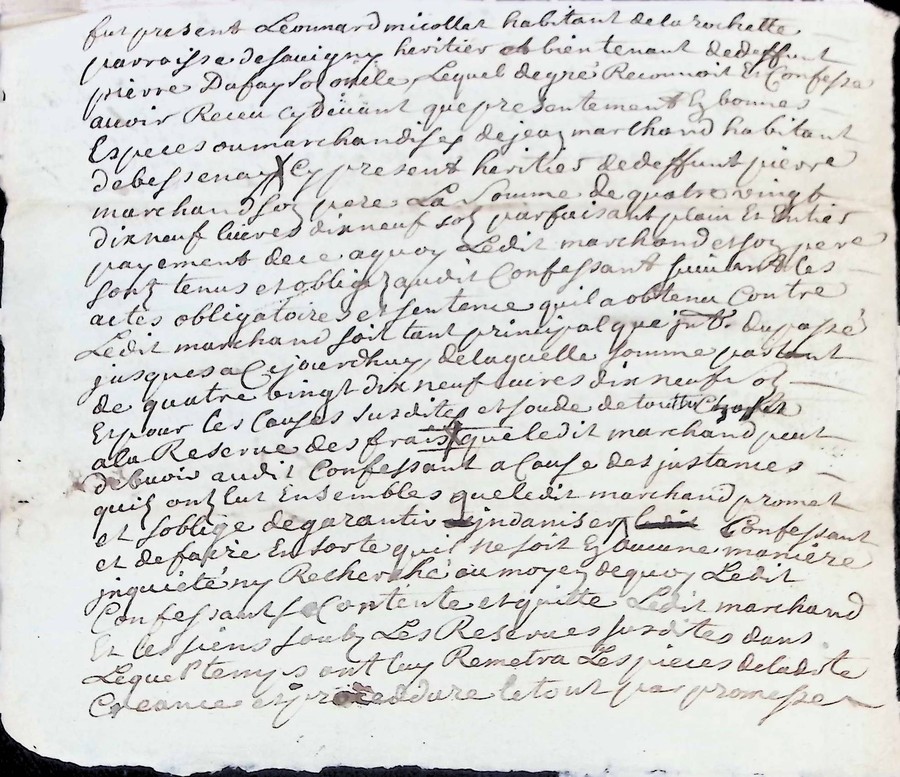 fut present Leonnard micollet habitant de la rochette
parroisse de savigny heritier et bientenant de deffunt
pierre Dufay son oncle, Lequel de gré Reconnoit Et Confesse
avoir Receu cydevant que presentement En bonnes
Especes ou marchandises de jean marchand habitant
de bessenay Cy present heritier de deffunt pierre
marchand son pere La Somme de quatre vingt
dix neuf livres dix neuf sols parfaisant plain Et Entier
payement de ce a quoy Ledit marchand et son pere
sont tenus et obligez audit Confessant suivant les
actes obligatoires et sentence quil a obtenu Contre
Ledit marchand soit tant principal que jnt. du passé
jusques a Cejourdhuy, de laquelle somme partant
de quatre vingt dix neuf livres dix neuf sols
Et pour les Causes susdites et soude de toutte Chose
a la Reserve des frais que ledit marchand peut
debvoir audit Confessant a Cause des jnstances
quilz ont Eut Ensembles que ledit marchand promet
et soblige de garantir jndaniser ledit Confessant
et de faire En sorte quil ne soit En aucune maniere
jnquiété ny Recherché au moyen de quoy Ledit
Confessant se Contente et quitte Ledit marchand
Et les siens soubz Les Reserves susdites dans
Lequel temps ont luy Remetra Les pieces de ladite
Creance et procedure le tout par promesse